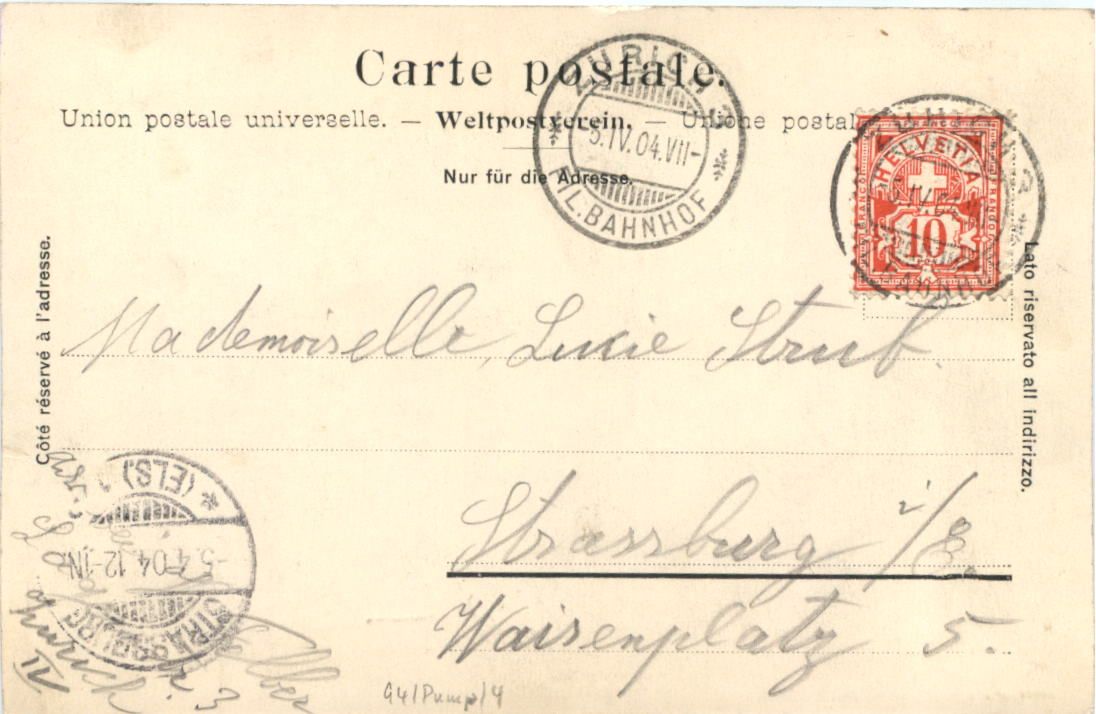 Carte postale.
Union postale universelle. — Weltpostverein. — Unione postal
Nur für die Adresse.
ZÜRICH 3
5.IV.04.VII-
FIL.BAHNHOF
HELVETIA
FRANCO
FRANCO
10
Côté réservé à l'adresse.
Lato riservato all indirizzo.
Mademoiselle Lucie Strub.
Strassburg i/E.
Waisenplatz 5.
STRASSBURG
-5.4.04.12-1N.
* (ELS.) 1
Zürich
IV
3